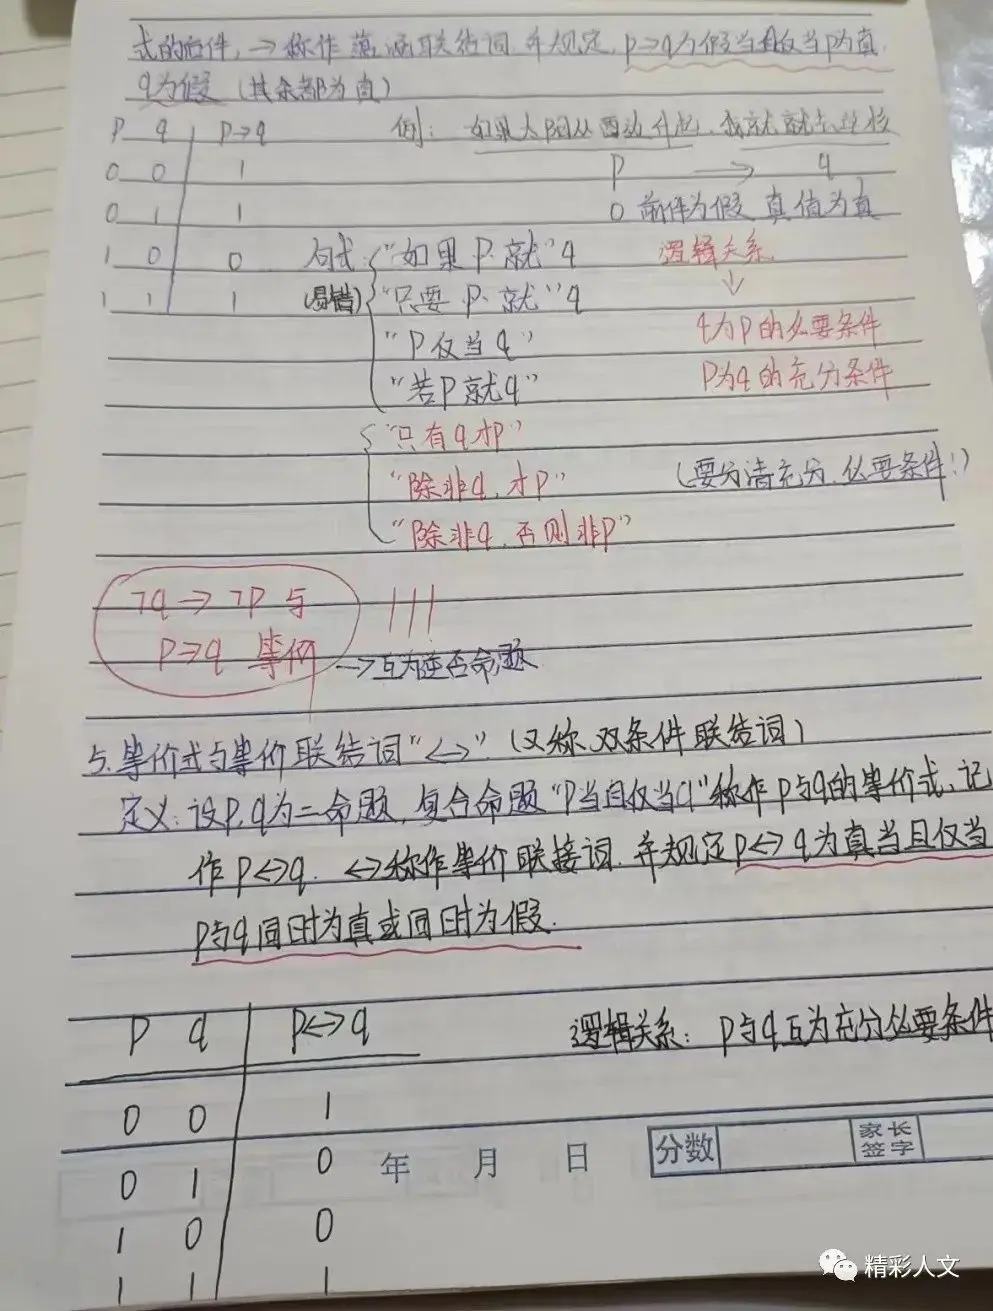 式的后件，→称作蕴涵联结词.并规定，p→q为假当且仅当p为真
q为假（其余都为真）
p q p→q 例：如果太阳从西边升起，我就
p → q
0 0 1
0 1 1 0 前件为假 真值为真
1 0 0 句式 "如果p.就"q 逻辑关系
1 1 1 (易错) "只要p.就"q ↓
"p仅当q" q为p的必要条件
"若p就q" p为q的充分条件
"只有q才p"
"除非q，才p" (要分清充分、必要条件!)
"除非q，否则非p"
¬q→¬p 与 !!!
p→q 等价 →互为逆否命题
5.等价式与等价联结词"<->"（又称双条件联结词）
定义：设p，q为二命题，复合命题"p当且仅当q"称作p与q的等价式、记
作p<->q. <->称作等价联接词.并规定p<->q为真当且仅当
p与q同时为真或同时为假.
p q p<->q 逻辑关系：p与q互为充分必要条件
0 0 1
0 1 0 年 月 日 分数 家长签字
1 0 0
1 1 1
精彩人文